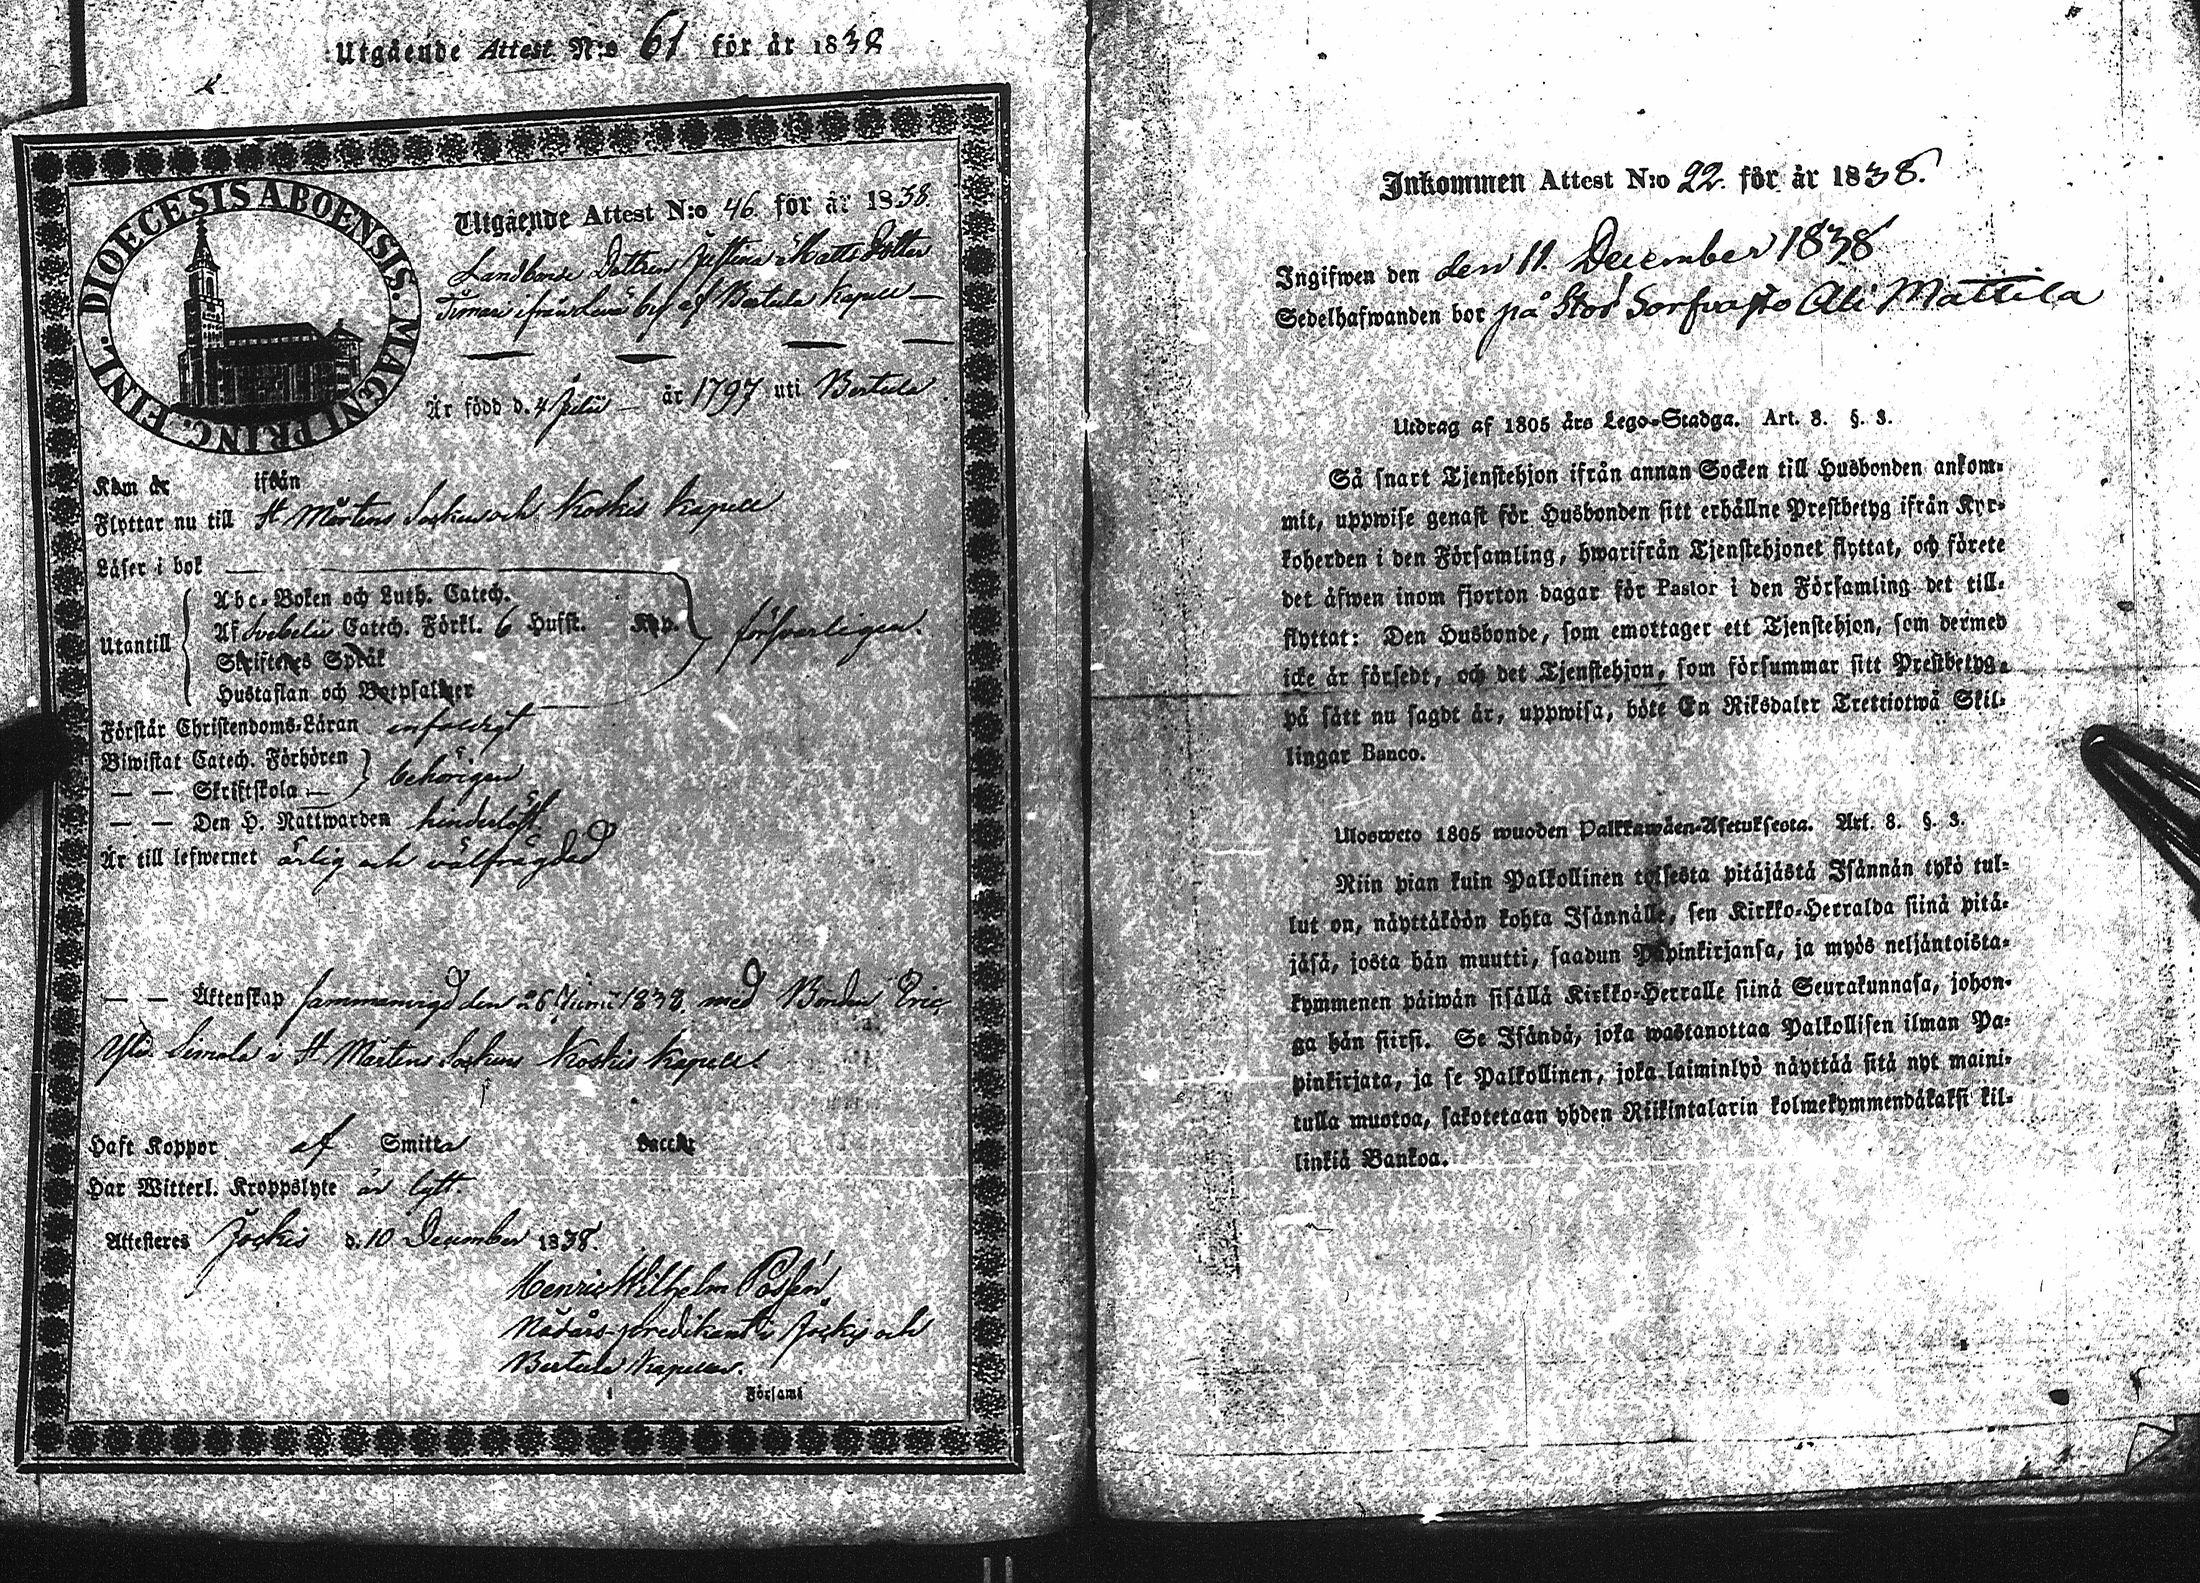 Utgående Attest N:o 61 för år 1838
DIOECESIS ABOENSIS. MAGNI PRINC. FINL.
Utgående Attest N:o 46. för år 1838.
Landbonde Dottren Justina Matts dotter
ifrån by af Bertula Kapell —
Är född d. 4 Julii — år 1797 uti Bertula.
Kom år ifrån
Flyttar nu till St Mårtens Socken och Koskis Kapell
Läser i bok
Utantill
Abc-Boken och Luth. Catech.
Af Svebelii Catech. Förkl. 6 Hufst. Kap. försvarligen.
Skriftenes Språk
Hustaflan och Botpsalmer
Förstår Christendoms-Läran enfaldigt
Biwistat Catech. Förhören
— — Skriftskola — behörigen
— — Den H. Nattwarden hinderlöst
Är till lefwernet ärlig och välfrägdad
— — Äktenskap sammanvigd den 26 Junii 1838. med Bonden Eric
Yli Simola i St Mårtens Sockens Koskis Kapell.
Haft Koppor af Smitta Vaccin
Har Witterl. Kroppslyte är lytt.
Attesteres Jockis d. 10 December 1838.
Henric Wilhelm
Nådårs-predikant i Jockis och
Bertula Kapeller.
i Församl
Inkommen Attest N:o 22. för år 1838.
Ingifwen den den 11. December 1838
Sedelhafwanden bor på Stor Sorfvasto Ali Mattila
Utdrag af 1805 års Lego-Stadga. Art. 8. §. 3.
Så snart Tjenstehjon ifrån annan Socken till Husbonden ankom-
mit, uppwise genast för Husbonden sitt erhållne Prestbetyg ifrån Kyr-
koherden i den Församling, hwarifrån Tjenstehjonet flyttat, och förete
det äfwen inom fjorton dagar för Pastor i den Församling det till-
flyttat: Den Husbonde, som emottager ett Tjenstehjon, som dermed
icke är försedt, och det Tjenstehjon, som försummar sitt Prestbetyg,
på sätt nu sagdt är, uppwisa, böte En Riksdaler Trettiotwå Skil-
lingar Banco.
Ulosweto 1805 wuoden Palkkawäen-Asetuksesta. Art. 8. §. 3.
Niin pian kuin Palkollinen toisesta pitäjästä Isännän tykö tul-
lut on, näyttäköön kohta Isännälle, sen Kirkko-Herralda siinä pitä-
jäsä, josta hän muutti, saadun Papinkirjansa, ja myös neljäntoista-
kymmenen päiwän sisällä Kirkko-Herralle siinä Seurakunnasa, johon-
ga hän siirsi. Se Isändä, joka wastanottaa Palkollisen ilman Pa-
pinkirjata, ja se Palkollinen, joka laiminlyö näyttää sitä nyt maini-
tulla muotoa, sakotetaan yhden Riikintalarin kolmekymmendäkaksi kil-
linkiä Bankoa.